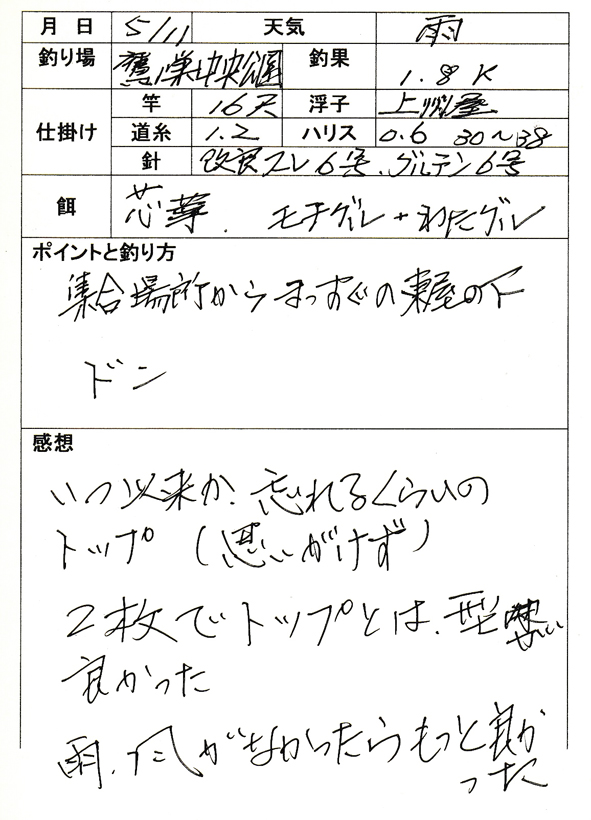 月 日 5/11 天気 雨
釣り場 鷲の巣中央公園 釣果 1.8K
仕掛け 竿 16尺 浮子 上州屋
道糸 1.2 ハリス 0.6 30～38
針 改良スレ6号、グルテン6号
餌 芯華. モチグル+わたグル
ポイントと釣り方
集合場所からまっすぐの東屋の下
ドン
感想
いつ以来か、忘れるくらいの
トップ (思いがけず)
2枚でトップとは、型
良かった
雨、風がなかったらもっと良か
った